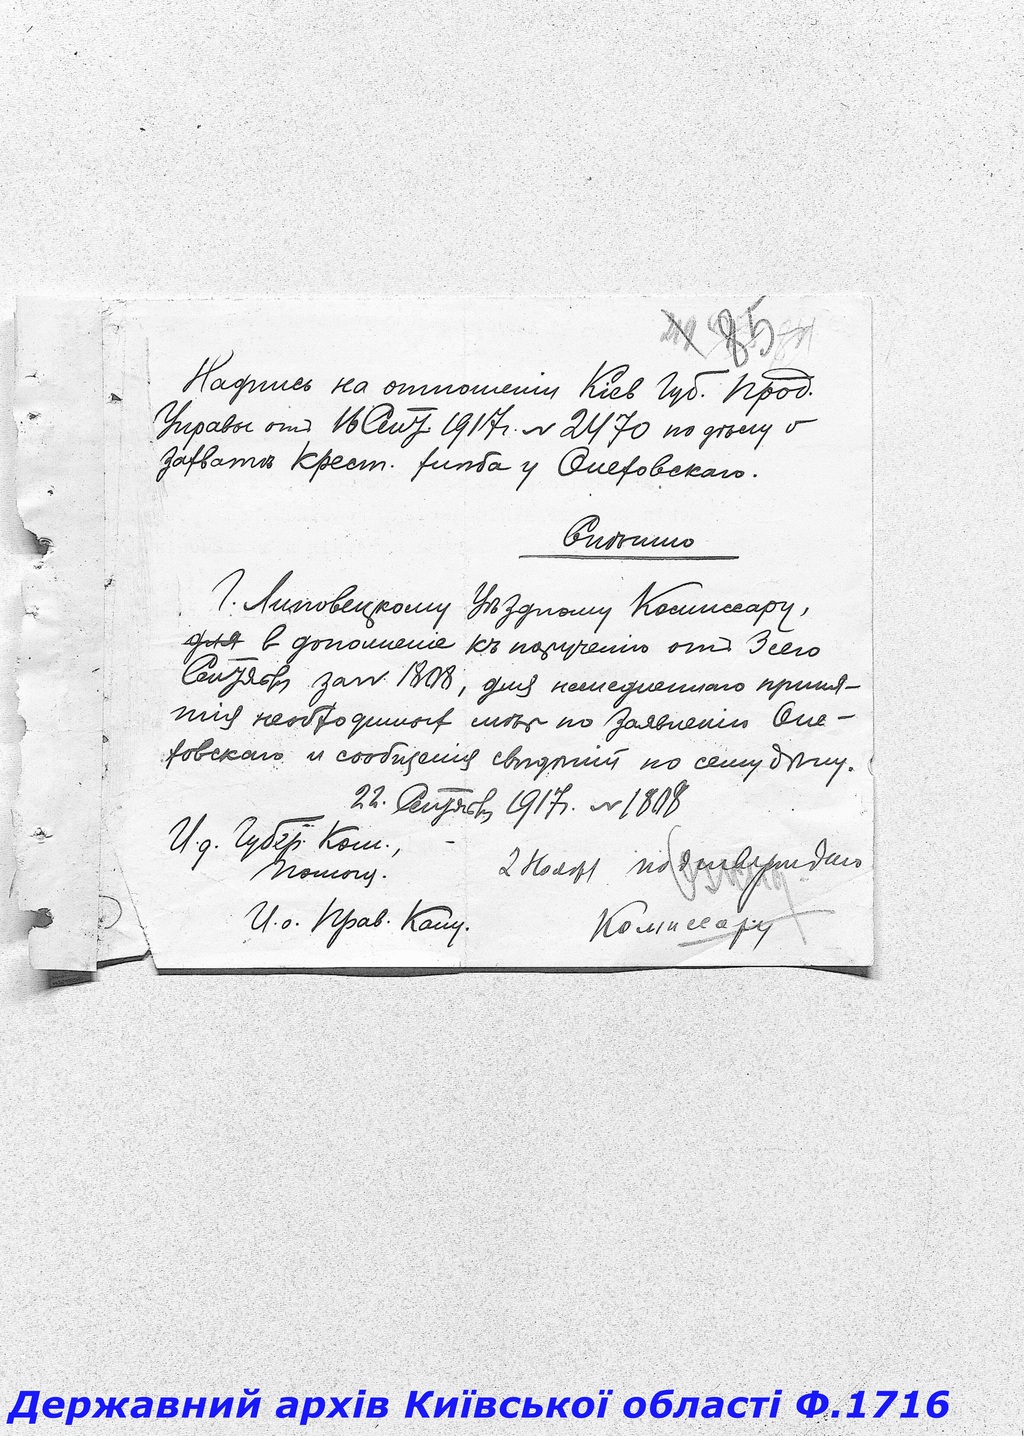 85
Надпись на отношении Кіев Губ. Прод.
Управы отъ 16 Сент. 1917 г. № 2470 по дѣлу о
захватѣ крест. хлѣба у Олеховскаго.
Спѣшно
Г. Липовецкому Уѣздному Комиссару,
для в дополненіе къ порученію отъ 3 сего
Сентября за № 1808, для немедленнаго приня-
тія необходимыхъ мѣръ по заявленію Оле-
ховскаго и сообщенія свѣдѣній по сему дѣлу.
22. Сентября 1917 г. № 1808
И. д. Губер. Ком.,
Помощ.
2 Ноября подтверждено
И. о. Прав. Канц.
Комиссару
Державний архів Київської області Ф.1716